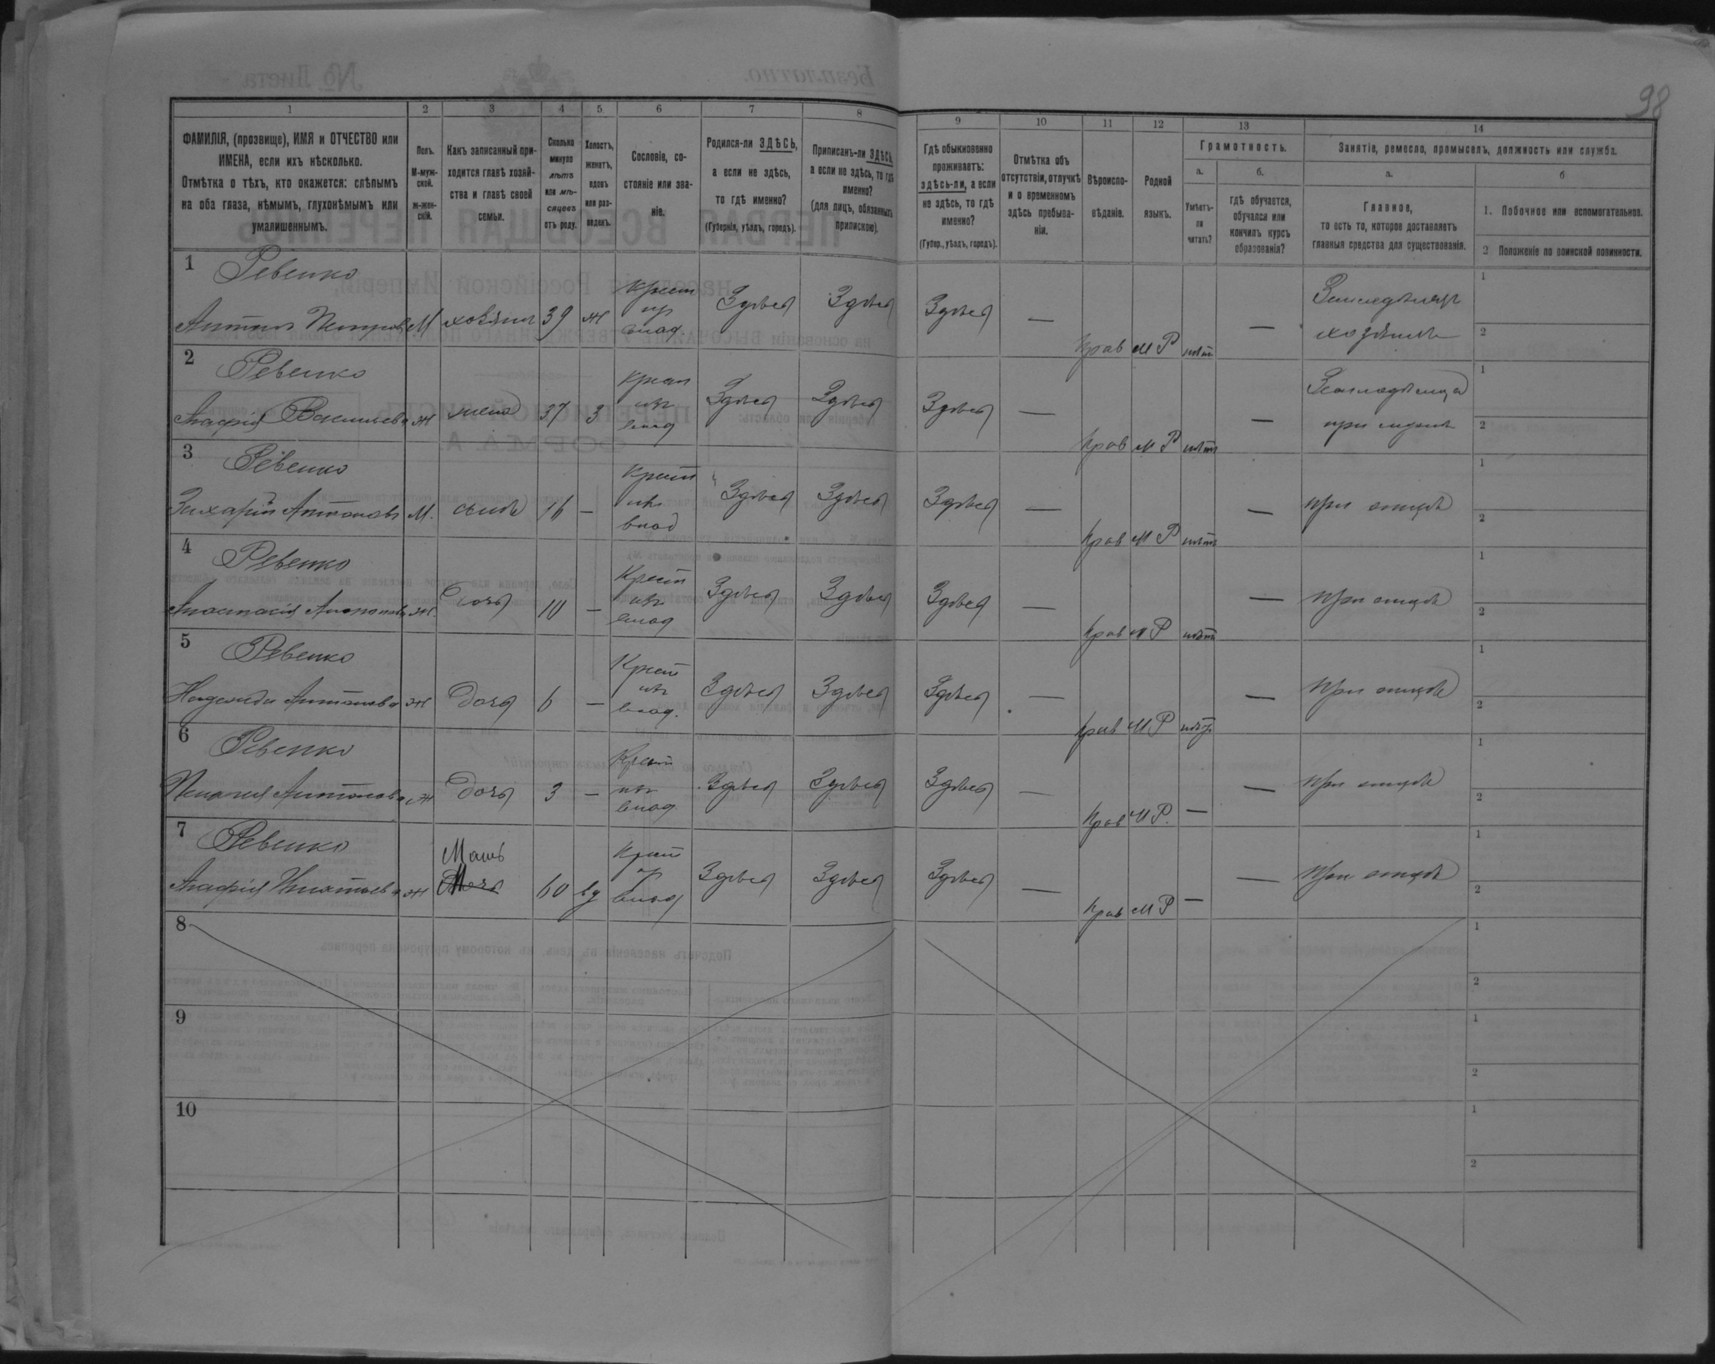 98
1 2 3 4 5 6 7 8 9 10 11 12 13 14
ФАМИЛІЯ, (прозвище), ИМЯ и ОТЧЕСТВО или
ИМЕНА, если ихъ нѣсколько.
Отмѣтка о тѣхъ, кто окажется: слѣпымъ
на оба глаза, нѣмымъ, глухонѣмымъ или
умалишеннымъ.
Полъ.
М-муж-
ской.
ж-жен-
скій.
Какъ записанный при-
ходится главѣ хозяй-
ства и главѣ своей
семьи.
Сколько
минуло
лѣтъ
или мѣ-
сяцевъ
отъ роду.
Холостъ,
женатъ,
вдовъ
или раз-
веденъ.
Сословіе, со-
стояніе или зва-
ніе.
Родился-ли ЗДѢСЬ,
а если не здѣсь,
то гдѣ именно?
(Губернія, уѣздъ, городъ).
Приписанъ-ли ЗДѢСЬ,
а если не здѣсь, то гдѣ
именно?
(для лицъ, обязанныхъ
припискою).
Гдѣ обыкновенно
проживаетъ:
здѣсь-ли, а если
не здѣсь, то гдѣ
именно?
(Губер., уѣздъ, городъ).
Отмѣтка объ
отсутствіи, отлучкѣ
и о временномъ
здѣсь пребыва-
ніи.
Вѣроиспо-
вѣданіе.
Родной
языкъ.
Грамотность.
а.
Умѣетъ-
ли
читать?
б.
гдѣ обучается,
обучался или
кончилъ курсъ
образованія?
Занятіе, ремесло, промыселъ, должность или служба.
а.
Главное,
то есть то, которое доставляетъ
главныя средства для существованія.
б
1. Побочное или вспомогательное.
2 Положеніе по воинской повинности.
1 Ревенко
Антонъ Петровъ М хозяинъ 39 ж Крест из влад. Здѣсь Здѣсь Здѣсь — Прав М Р нѣтъ — Земледѣлецъ хозяинъ 1 2
2 Ревенко
Агафія Васильева ж жена 37 з Крест изъ влад Здѣсь Здѣсь Здѣсь — Прав М Р нѣтъ — Земледѣлица при мужѣ 1 2
3 Ревенко
Захарій Антоновъ М. сынъ 16 — Крест изъ влад Здѣсь Здѣсь Здѣсь — Прав М Р нѣтъ — при отцѣ 1 2
4 Ревенко
Анастасія Антонова ж. Дочь 10 — Крест изъ влад Здѣсь Здѣсь Здѣсь — Прав М Р нѣтъ — при отцѣ 1 2
5 Ревенко
Надежда Антонова ж Дочь 6 — Крест изъ влад. Здѣсь Здѣсь Здѣсь — Прав М Р нѣтъ — при отцѣ 1 2
6 Ревенко
Антонова ж Дочь 3 — Крест изъ влад Здѣсь Здѣсь Здѣсь — Прав М Р. — — при отцѣ 1 2
7 Ревенко
Агафія Игнатьева ж Мать 60 вд Крест из влад Здѣсь Здѣсь Здѣсь — Прав М Р — — при отцѣ 1 2
8 1 2
9 1 2
10 1 2